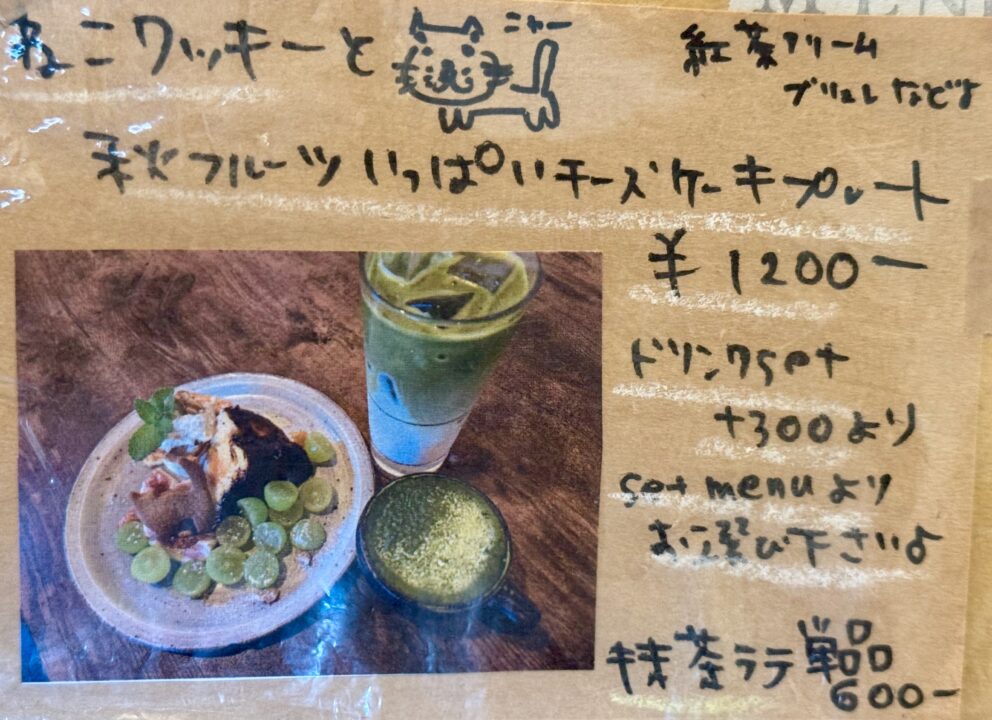 ねこクッキーと
ニャー
紅茶クリーム
ブリュレなどよ
秋フルーツいっぱいチーズケーキプレート
¥1200ー
ドリンクset
+300より
set menuより
お選び下さいよ
抹茶ラテ単品
600ー
MEN